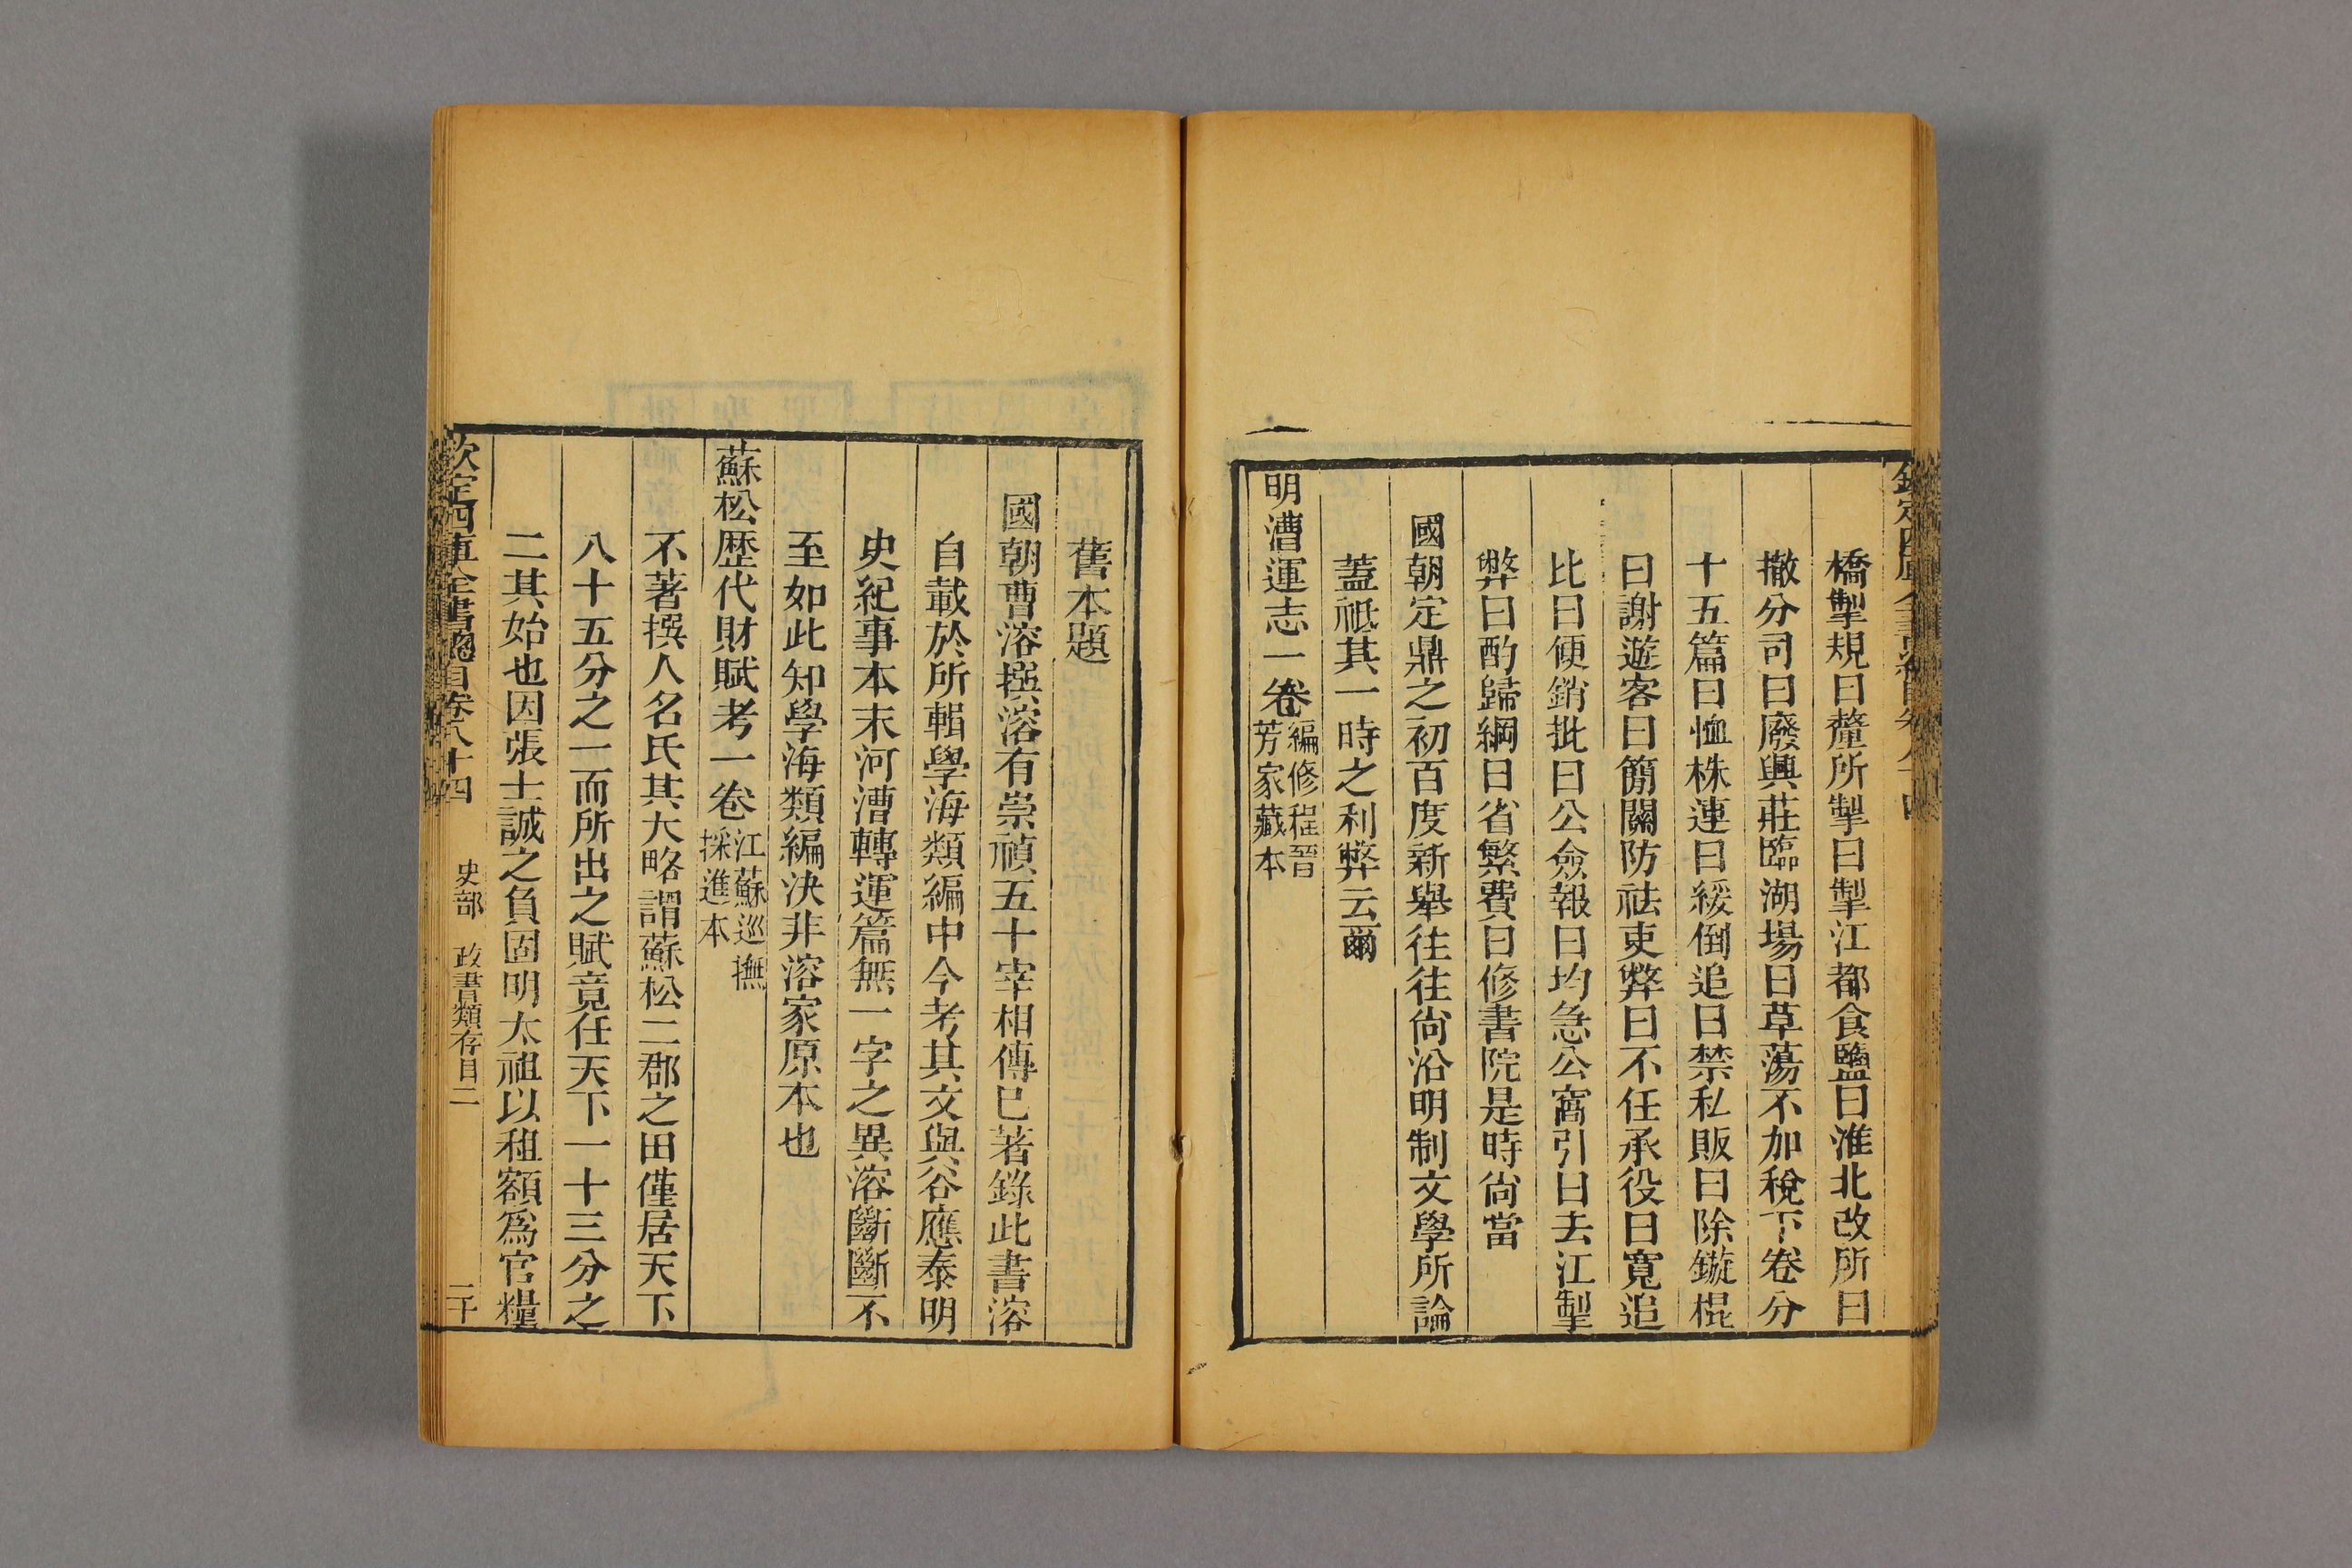 橋掣規曰釐所掣曰掣江都食鹽曰淮北改所曰
撤分司曰廢興莊臨湖場曰草蕩不加稅下卷分
十五篇曰恤株連曰緩倒追曰禁私販曰除鏇棍
曰謝遊客曰簡關防祛吏弊曰不任承役曰寬追
比曰便銷批曰公僉報曰均急公窩引曰去江掣
弊曰酌歸綱曰省繁費曰修書院是時尙當
國朝定鼎之初百度新舉往往尙沿明制文學所論
蓋祗其一時之利弊云爾
明漕運志一卷編修程晉芳家藏本
舊本題
國朝曹溶撰溶有崇禎五十宰相傳已著錄此書溶
自載於所輯學海類編中今考其文與谷應泰明
史紀事本末河漕轉運篇無一字之異溶斷斷不
至如此知學海類編决非溶家原本也
蘇松歷代財賦考一卷江蘇巡撫採進本
不著撰人名氏其大略謂蘇松二郡之田僅居天下
八十五分之一而所出之賦竟任天下一十三分之
二其始也因張士誠之負固明太祖以租額爲官糧
欽定四庫全書總目卷八十四 史部 政書類存目二 二十